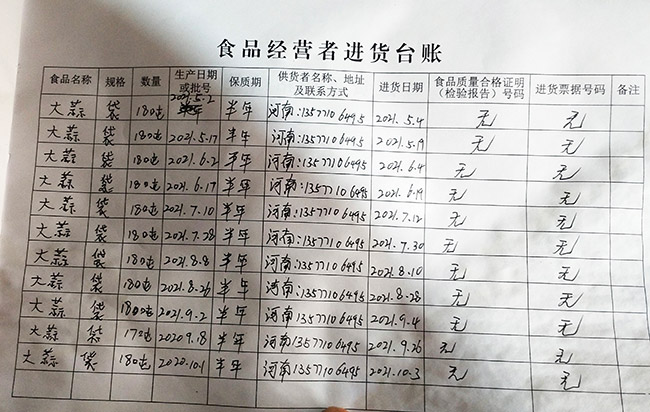 食品经营者进货台账
食品名称 规格 数量 生产日期或批号 保质期 供货者名称、地址及联系方式 进货日期 食品质量合格证明（检验报告）号码 进货票据号码 备注
大蒜 袋 180吨 2021.5.2 半年 河南:13577106495 2021.5.4 无 无
大蒜 袋 180吨 2021.5.17 半年 河南:13577106495 2021.5.19 无 无
大蒜 袋 180吨 2021.6.2 半年 河南:13577106495 2021.6.4 无 无
大蒜 袋 180吨 2021.6.17 半年 河南:13577106495 2021.6.19 无 无
大蒜 袋 180吨 2021.7.10 半年 河南:13577106495 2021.7.12 无 无
大蒜 袋 180吨 2021.7.28 半年 河南:13577106495 2021.7.30 无 无
大蒜 袋 180吨 2021.8.8 半年 河南:13577106495 2021.8.10 无 无
大蒜 袋 180吨 2021.8.26 半年 河南:13577106495 2021.8.28 无 无
大蒜 袋 180吨 2021.9.2 半年 河南13577106495 2021.9.4 无 无
大蒜 袋 170吨 2020 9.18 半年 河南13577106495 2021.9.26 无 无
大蒜 袋 180吨 2020.10.1 半年 河南13577106495 2021.10.3 无 无